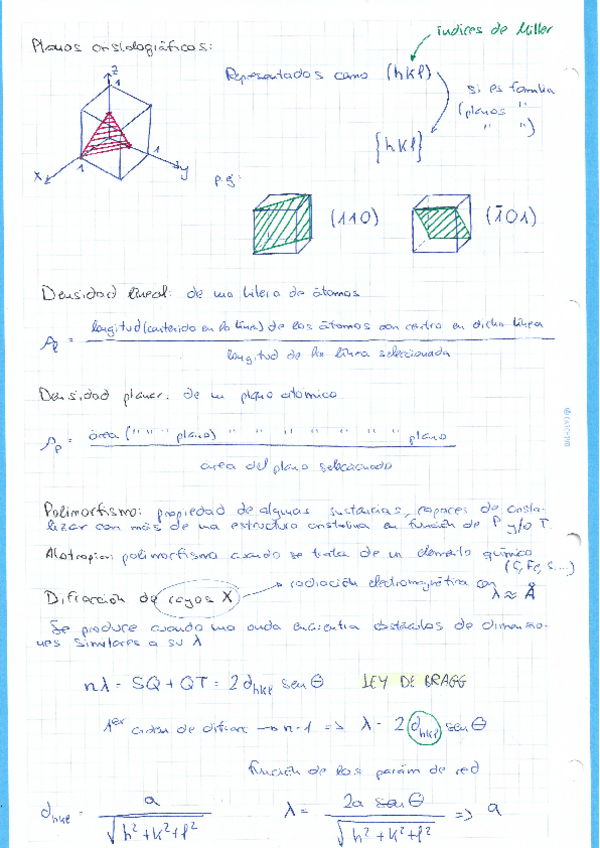 índices de Miller
Planos cristalográficos:
Representados como (hkl)
si es familia
(planos "
" ")
{hkl}
z
1
x
1
1
y
p.ej:
(110)
(1̄01)
Densidad lineal: de una hilera de átomos
ρl = longitud (contenido en la línea) de los átomos con centro en dicha línea
longitud de la línea seleccionada
Densidad planar: de un plano atómico
ρp = área (" " " plano) " " " " " " " plano
área del plano seleccionado
Polimorfismo: propiedad de algunas sustancias, capaces de crista-
lizar con más de una estructura cristalina en función de P y/o T.
Alotropía: polimorfismo cuando se trata de un elemento químico
(C, Fe, S....)
Difracción de rayos X → radiación electromagnética con
λ ≈ Å
Se produce cuando una onda encuentra obstáculos de dimensio-
nes similares a su λ
nλ = SQ + QT = 2 dhkl sen θ LEY DE BRAGG
1er orden de difrac → n=1 => λ = 2 dhkl sen θ
función de los parám de red
dhkl = a / √h²+k²+l² λ = 2a sen θ / √h²+k²+l² => a